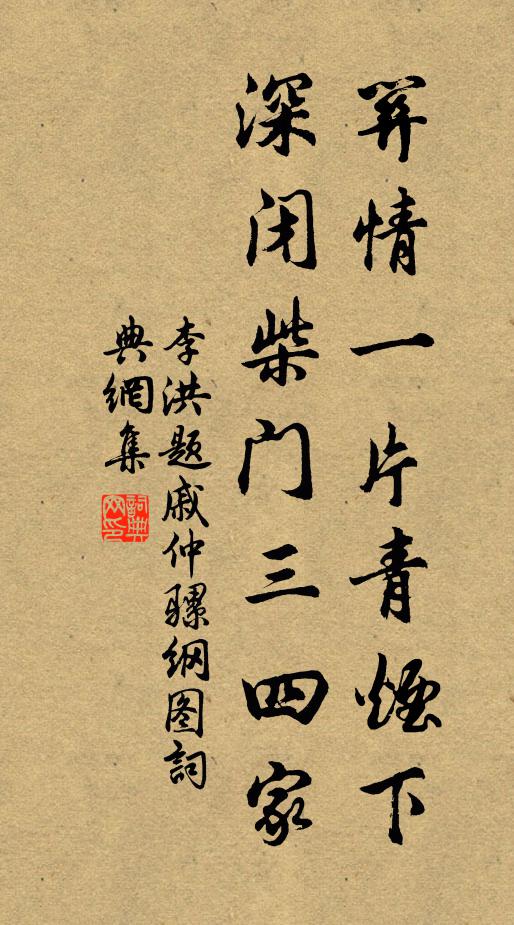 筭情一片青煙下
深闭柴门三四家
李洪题戚仲骡纲图詞
典網集
詞典网印